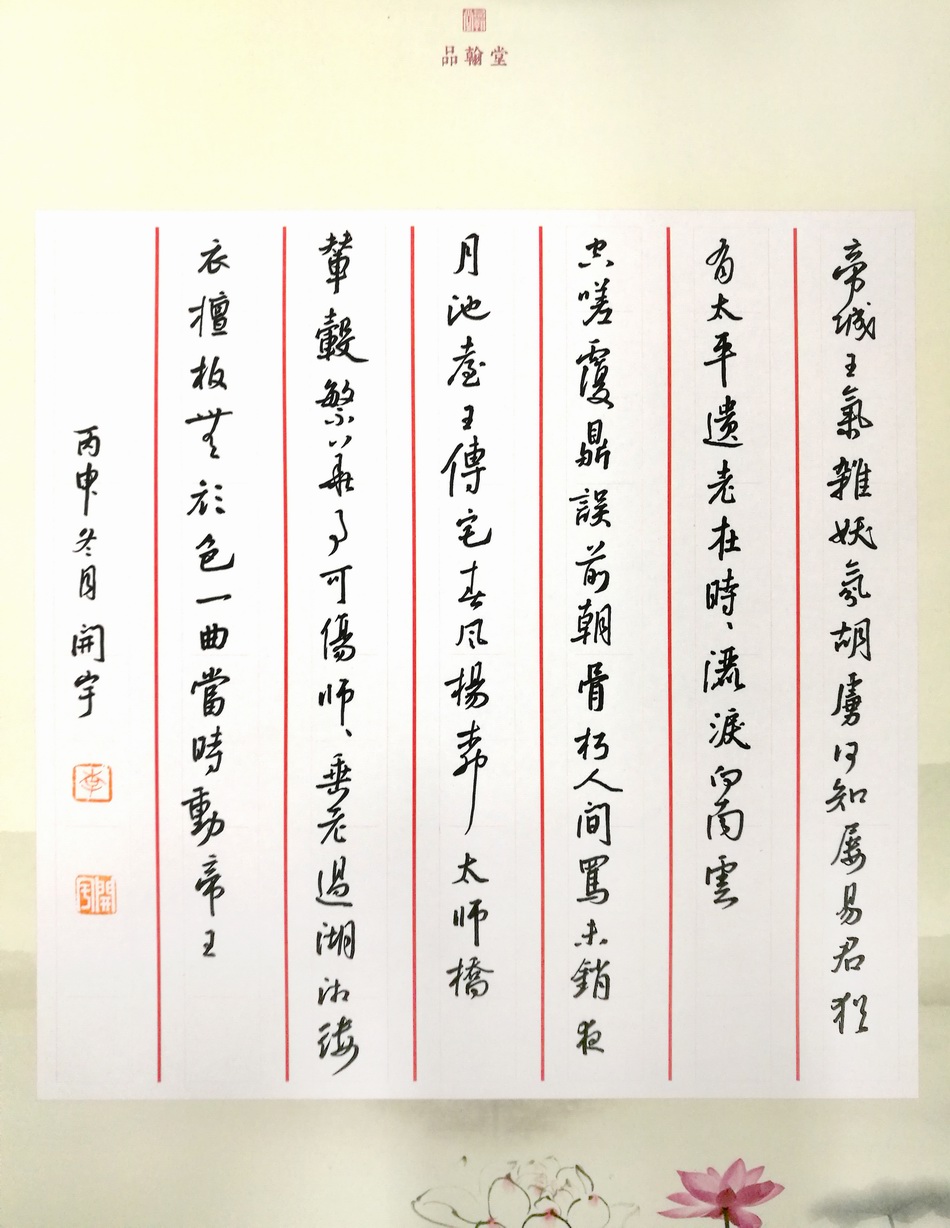 品翰堂
帝城王氣雜妖氛胡虜何知屡易君猶
有太平遺老在時、灑淚向南雲
空嗟覆鼎誤前朝骨朽人間罵未銷夜
月池臺王傅宅春风楊柳太师橋
輦轂繁華事可傷师、垂老過湖湘縷
衣檀板無顏色一曲當時動帝王
丙申冬月開宇
李
開宇